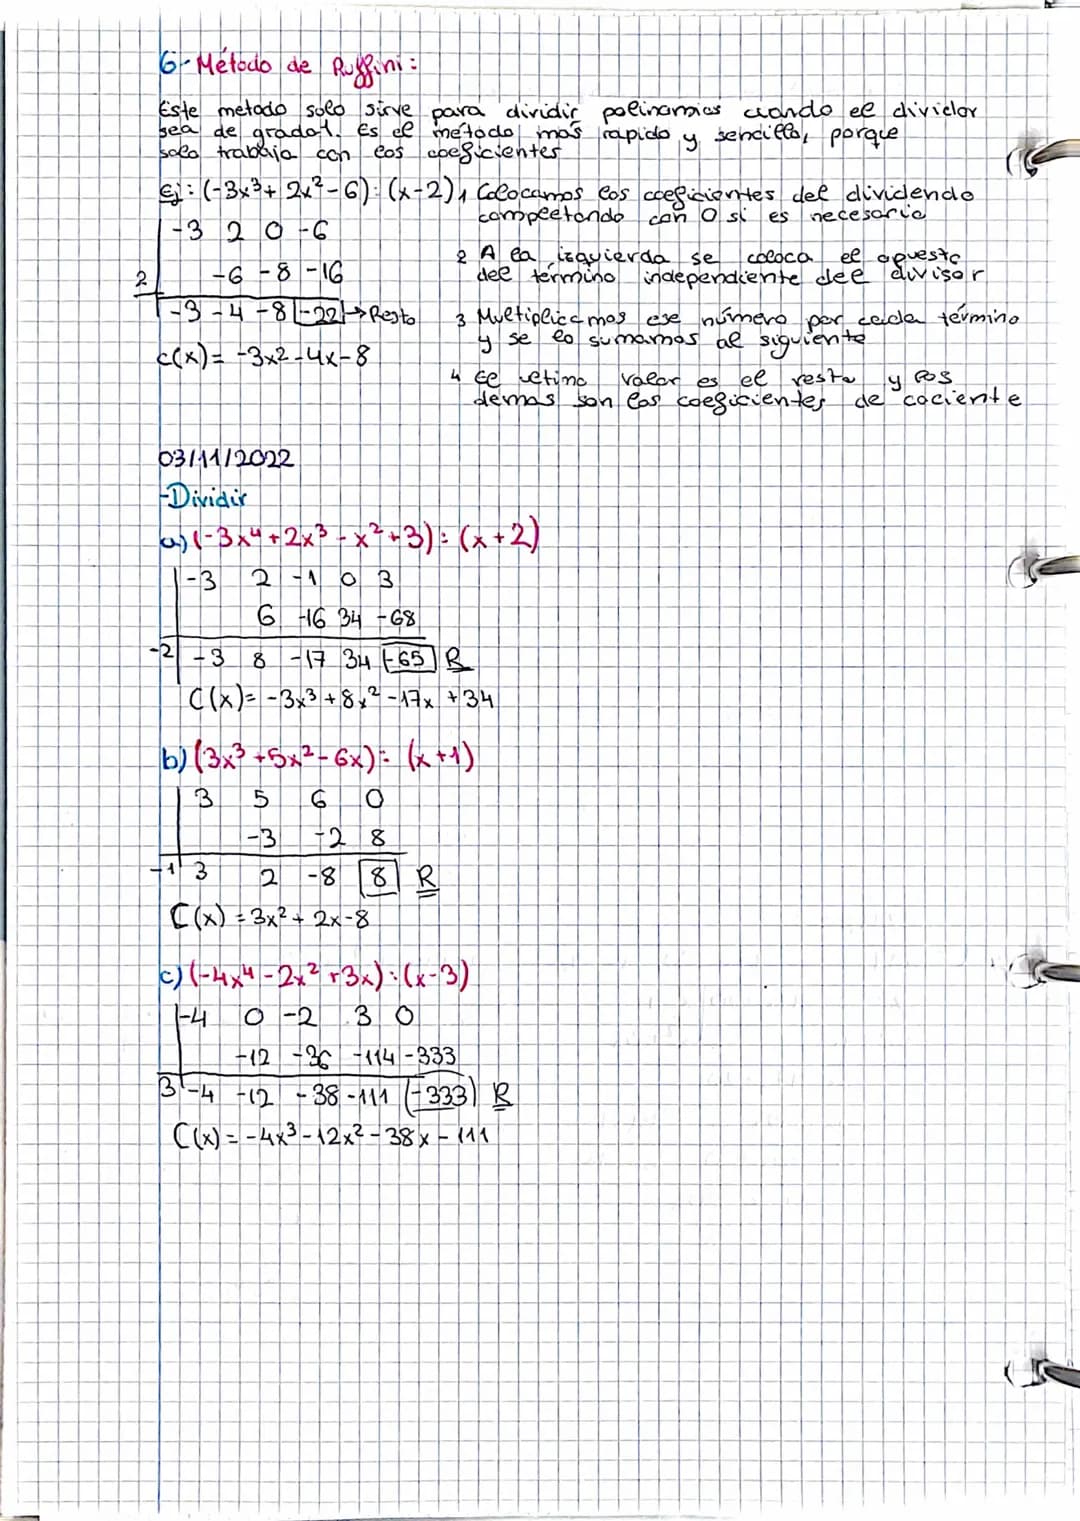 6- Método de Ruffini:
Este metodo solo sirve para dividir polinomios cuando el divisor
sea de grado 1. Es el método más rapido y sencillo, porque
solo trabaja con los coeficientes
Ej: (-3x³ + 2x² - 6) : (x-2) 1 Colocamos los coeficientes del dividendo
completando con 0 si es necesario
-3 2 0 -6
2 A la izquierda se coloca el opuesto
del término independiente del divisor
2 -6 -8 -16
-3 -4 -8 -22 → Resto
3 Multiplicamos ese número por cada término
y se lo sumamos al siguiente
c(x) = -3x² - 4x - 8
4 El ultimo valor es el resto y los
demas son los coeficientes de cociente
03/11/2022
- Dividir
a) (-3x⁴ + 2x³ - x² + 3) : (x + 2)
-3 2 -1 0 3
6 -16 34 -68
-2 -3 8 -17 34 -65 R
C(x) = -3x³ + 8x² - 17x + 34
b) (3x³ + 5x² - 6x) : (x + 1)
3 5 6 0
-3 -2 8
-1 3 2 -8 8 R
C(x) = 3x² + 2x - 8
c) (-4x⁴ - 2x² + 3x) : (x - 3)
-4 0 -2 3 0
-12 -36 -114 -333
3 -4 -12 -38 -111 (-333) R
C(x) = -4x³ - 12x² - 38x - 111